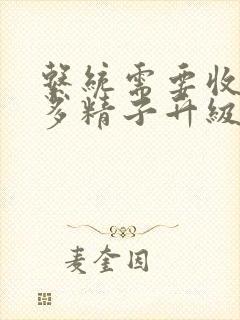 繫統需要收
多精子升級
麦奎因